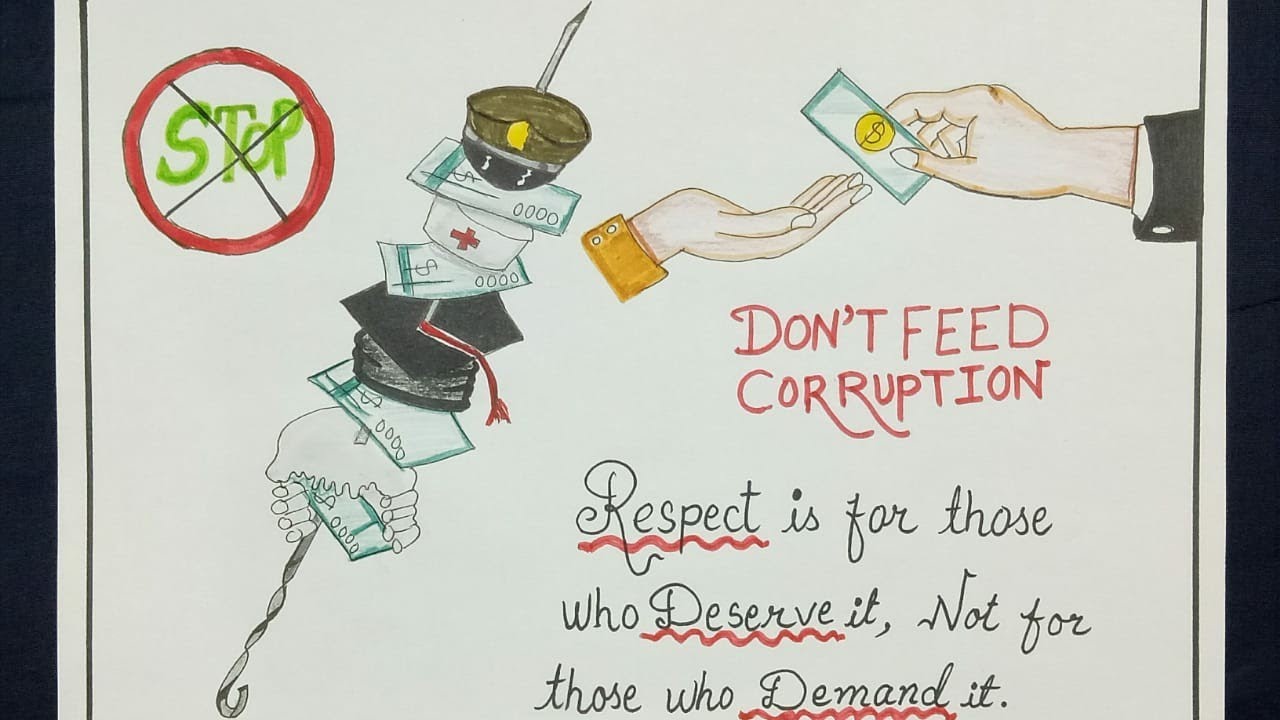 STOP
$
$
$
$
$
DON'T FEED
CORRUPTION
Respect is for those
who Deserve it, Not for
those who Demand it.